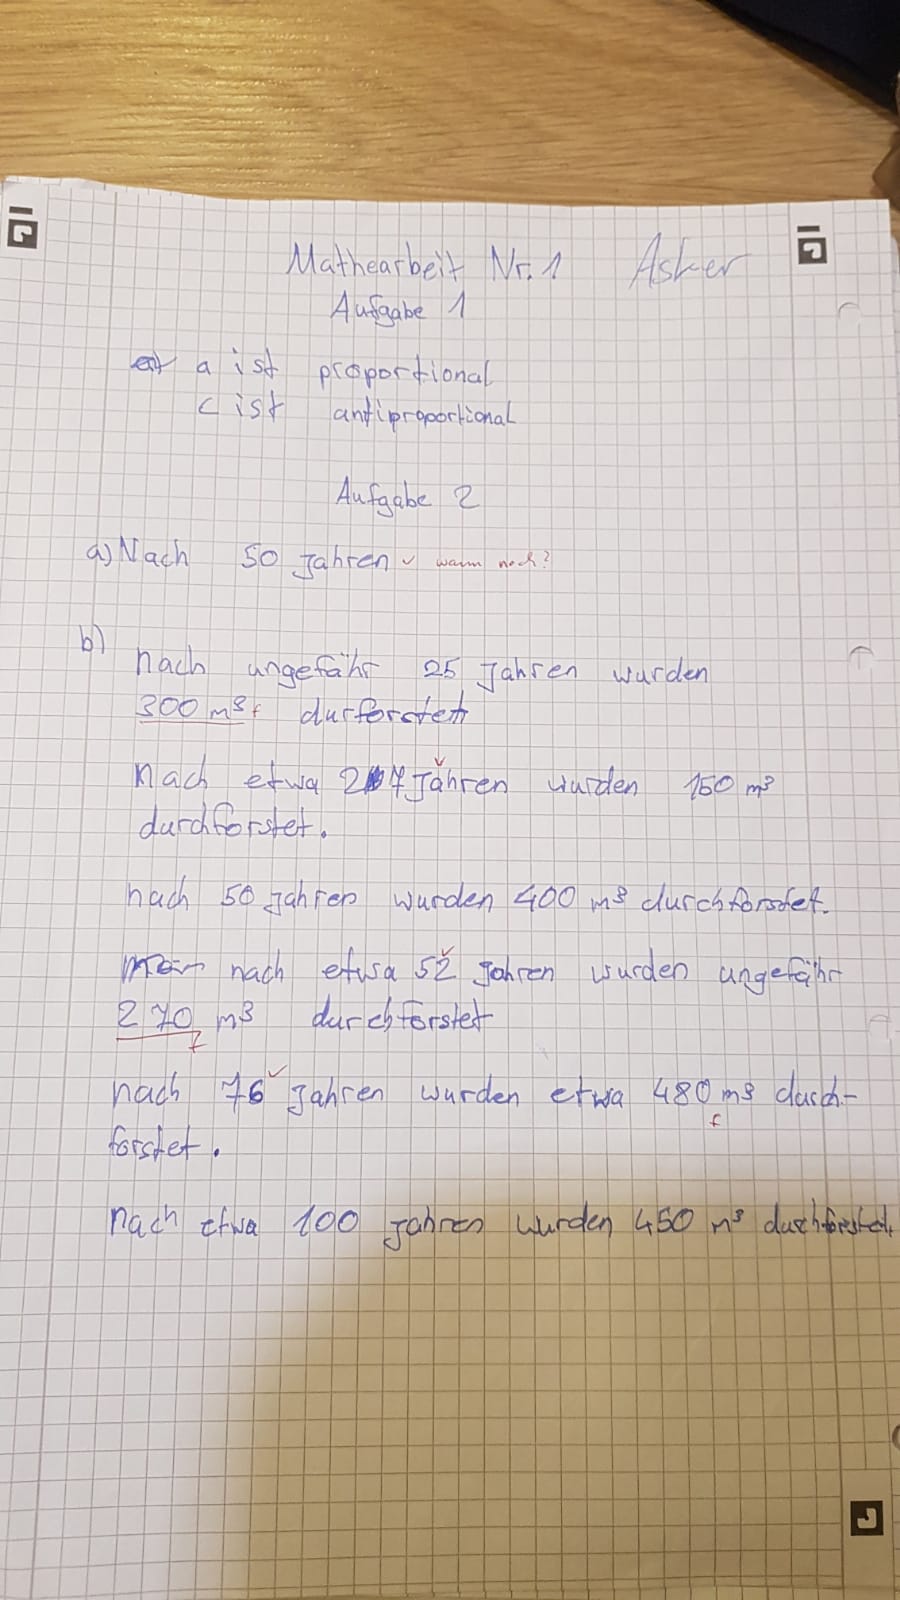 Mathearbeit Nr. 1 Asker
Aufgabe 1
a ist proportional
c ist antiproportional
Aufgabe 2
a) Nach 50 Jahren ✓ wann noch?
b)
nach ungefähr 25 Jahren wurden
300 m³ f durforstet
nach etwa 27 Jahren wurden 150 m³
durchforstet.
nach 50 Jahren wurden 400 m³ durchforstet.
nach etwa 52 Jahren wurden ungefähr
270 m³ durchforstet
f
nach 76 Jahren wurden etwa 480 m³ durch-
f
forstet.
nach etwa 100 Jahren wurden 450 m³ durchforstet.